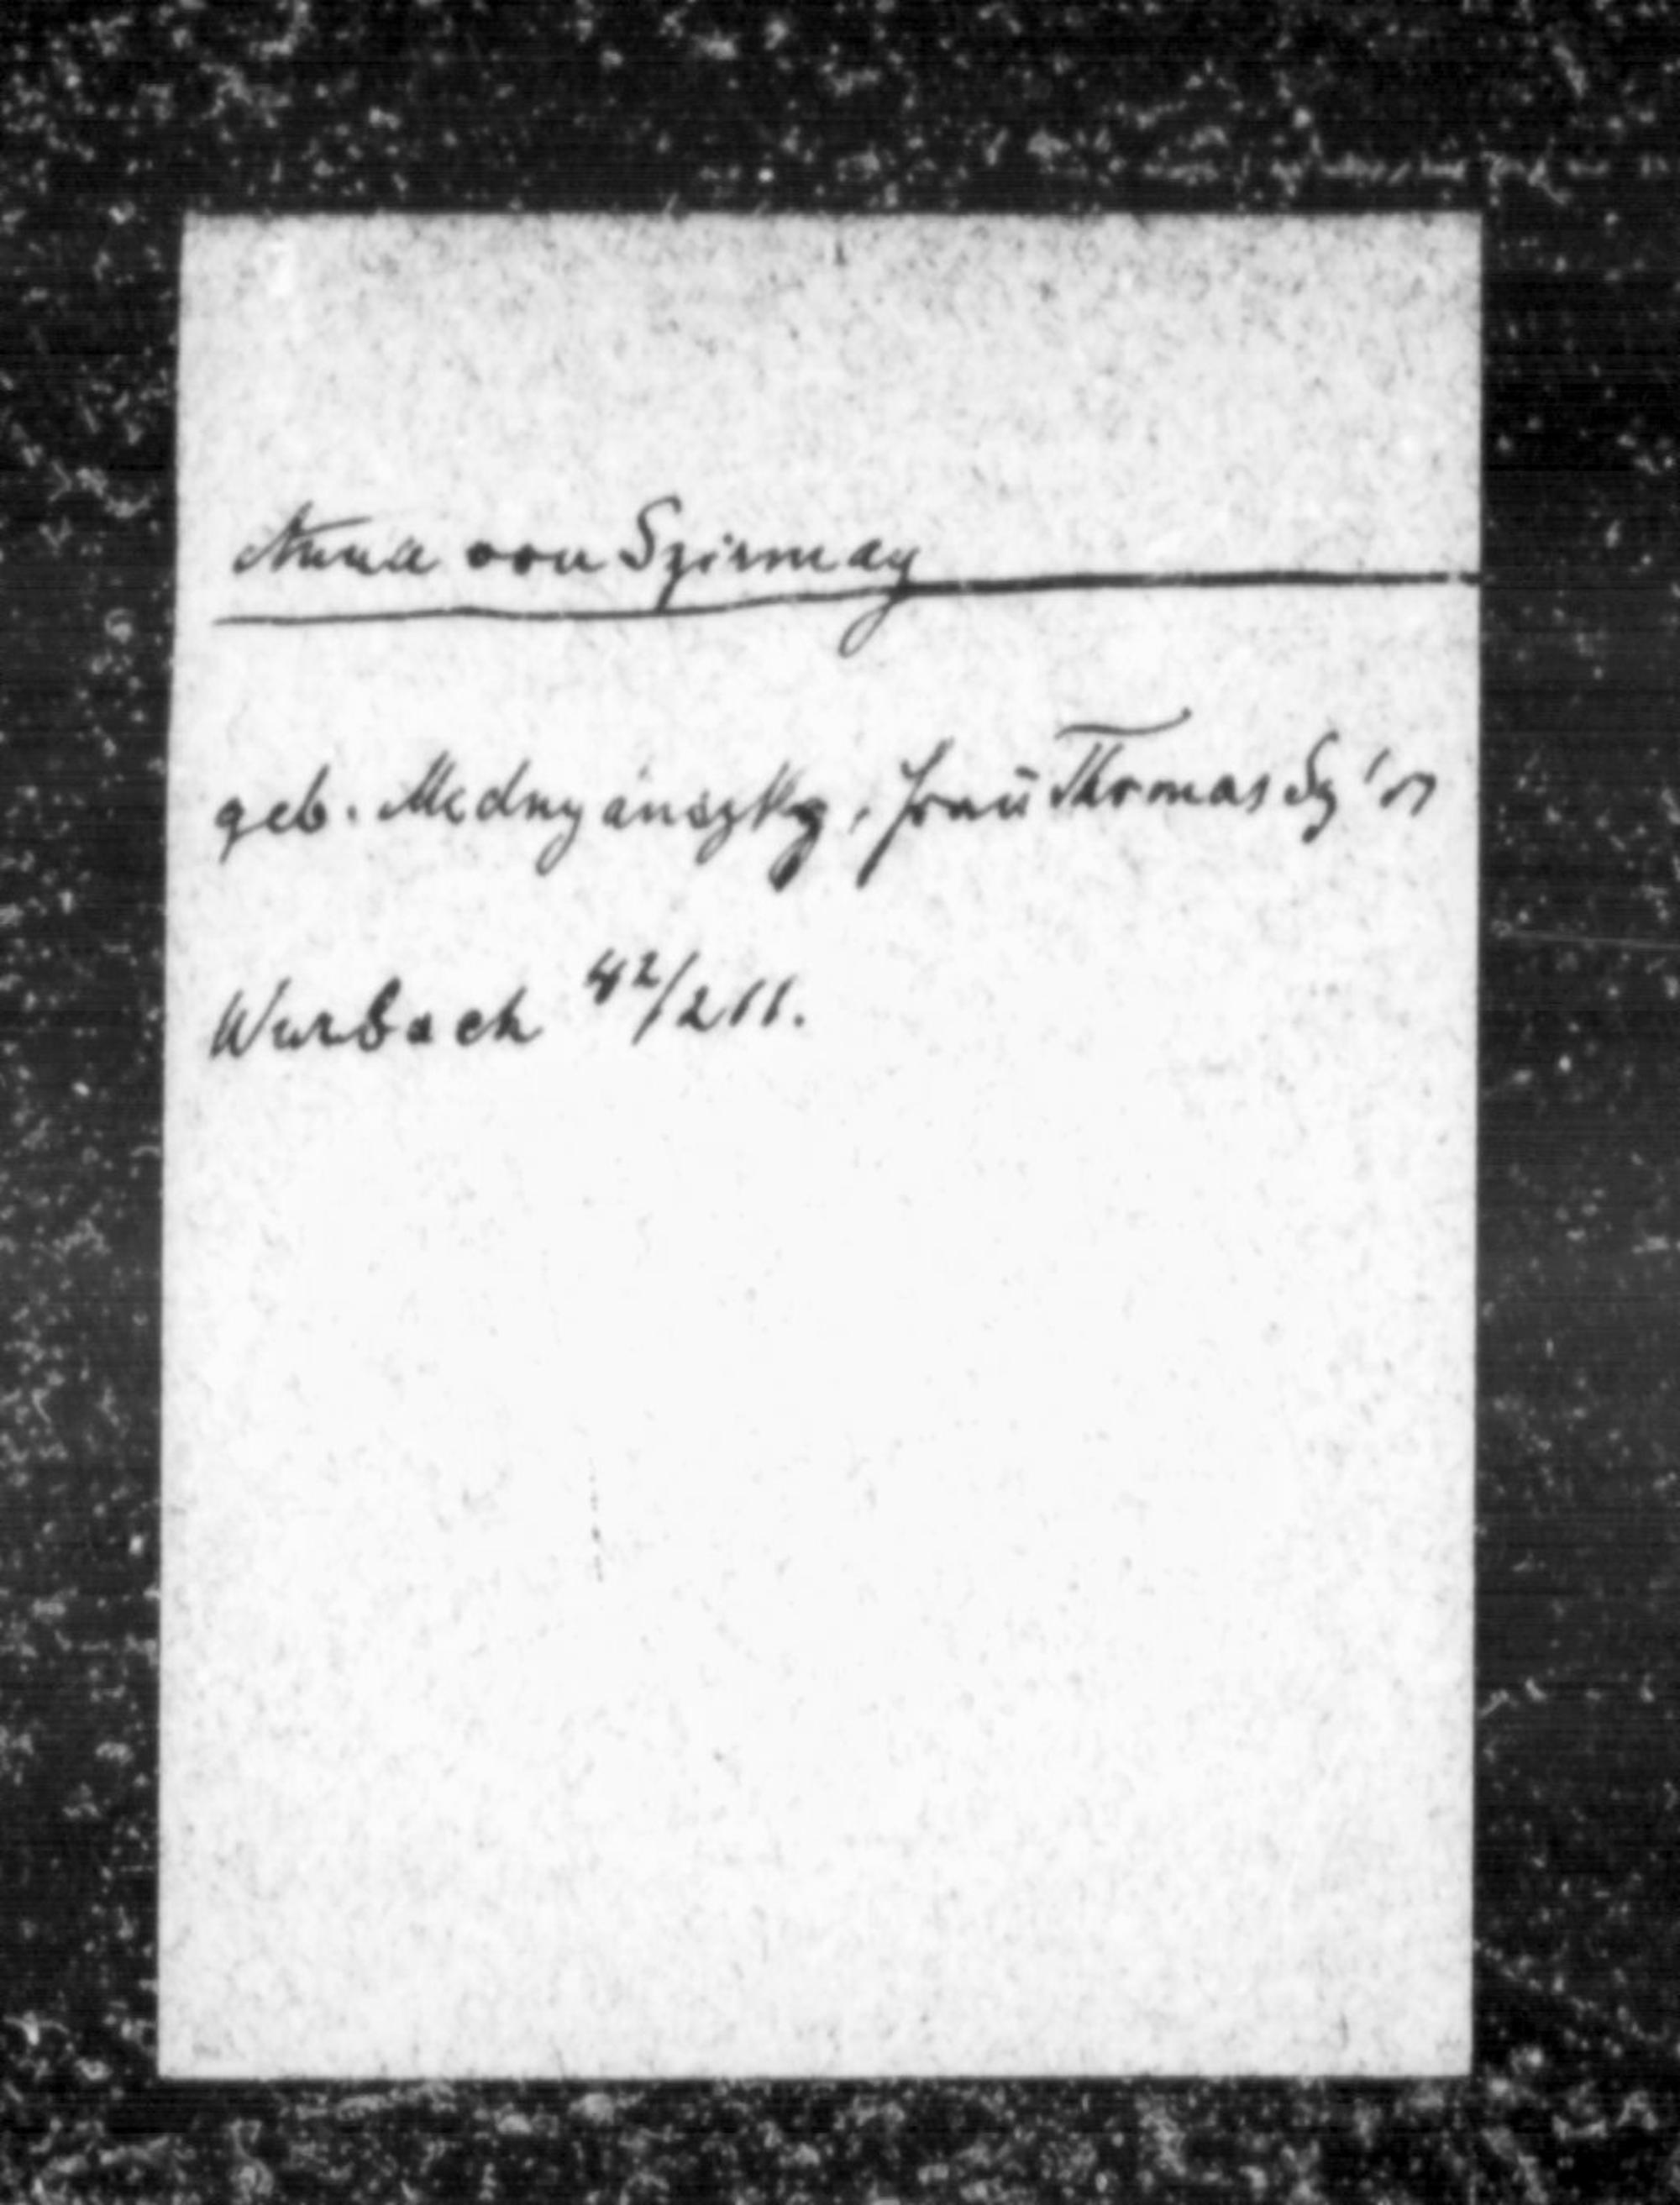 Anna von Szirmay
geb. Mednyánszky, Frau Thomas Sz'ss
Wurbach 42/266.